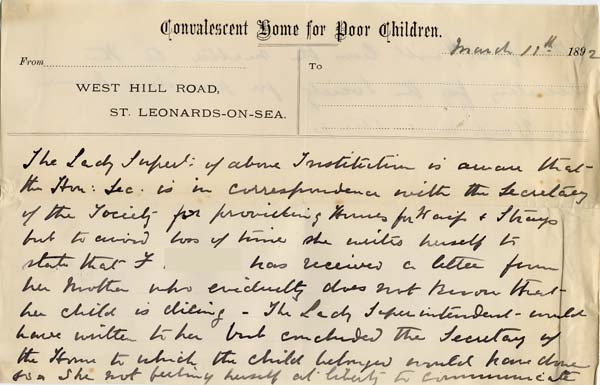 Convalescent Home for Poor Children.
March 11th 1892
From
To
WEST HILL ROAD,
ST. LEONARDS-ON-SEA.
The Lady Supert: of above Institution is aware that
the Hon: Sec. is in correspondence with the Secretary
of the Society for providing Homes for Waifs & Strays
but to avoid loss of time she writes herself to
state that F has received a letter from
her Mother who evidently does not know that
her child is dieing - The Lady Superintendent would
have written to her but concluded the Secretary of
the Home to which the child belonged would have done
so. She not feeling herself at liberty to communicate